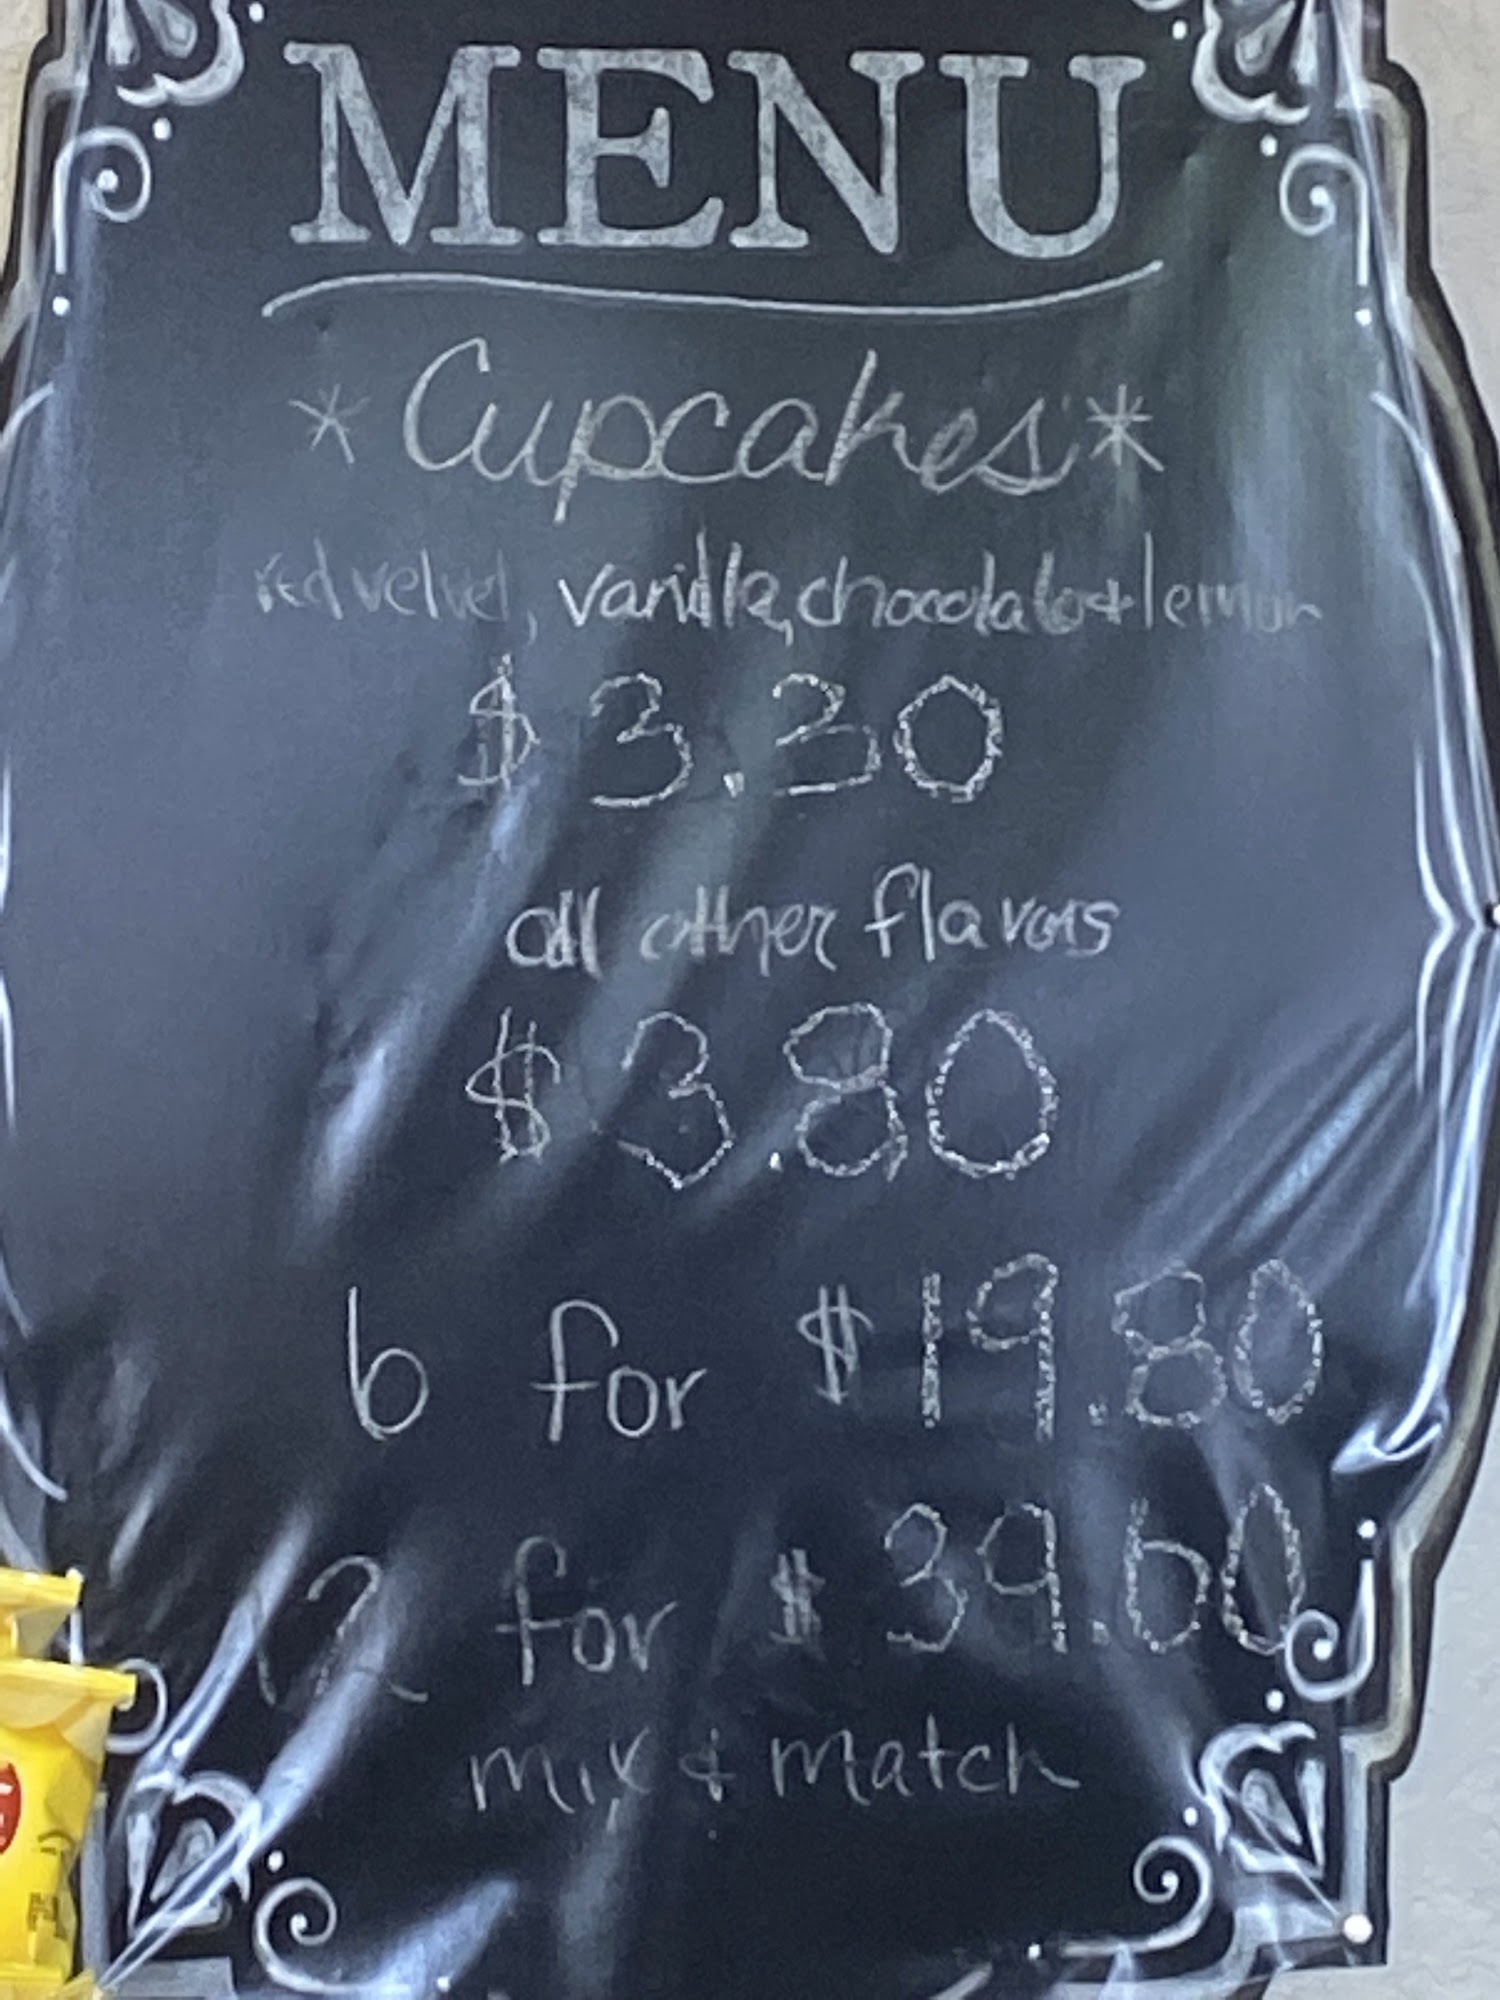 MENU
* Cupcakes *
red velvet, vanilla, chocolate + lemon
$3.30
all other flavors
$3.80
6 for $19.80
12 for $39.60
mix & match